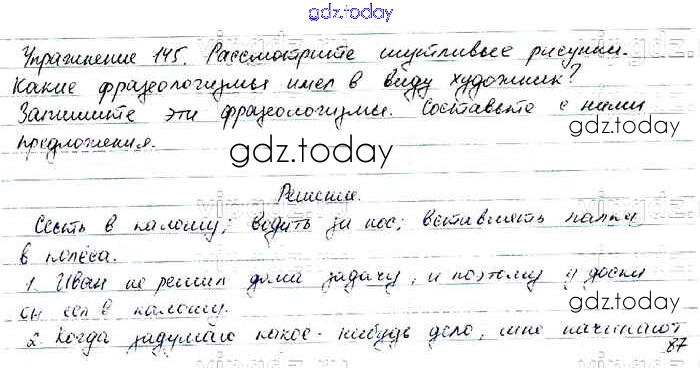 gdz.today
Упражнение 145. Рассмотрите шутливые рисунки.
Какие фразеологизмы имел в виду художник?
Запишите эти фразеологизмы. Составьте с ними
предложения.
gdz.today
Решение.
Сесть в калошу; водить за нос; вставлять палки
в колёса.
1. Иван не решил дома задачу, и поэтому у доски
он сел в калошу.
gdz.today
2. Когда задумаю какое-нибудь дело, мне начинают
87